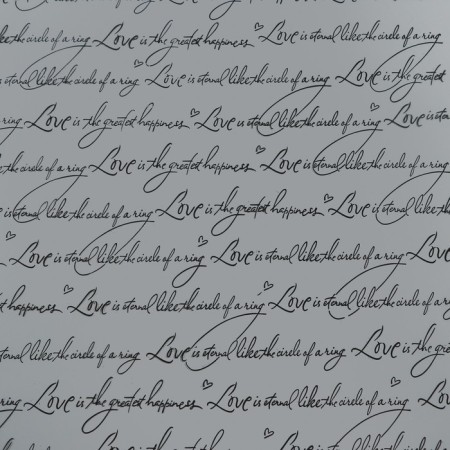 like the circle of a ring Love is the greatest happiness Love is eternal like the circle of a ring
is eternal like the circle of a ring Love is eternal like the circle of a ring Love is the greatest
ring Love is the greatest happiness Love is eternal like the circle of a ring Love is eternal
like the circle of a ring Love is the greatest happiness Love is eternal like the circle of a ring
is eternal like the circle of a ring Love is the greatest happiness Love is eternal
Love is eternal like the circle of a ring Love is eternal like the circle of a ring
happiness Love is eternal like the circle of a ring Love is eternal like the circle of a ring
eternal like the circle of a ring Love is eternal like the circle of a ring Love is the
ring Love is the greatest happiness Love is eternal like the circle of a ring Love
Love is the greatest happiness Love is eternal like the circle of a ring